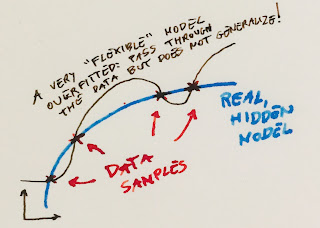 A VERY "FLEXIBLE" MODEL
OVERFITTED: PASS THROUGH
THE DATA BUT DOES NOT GENERALIZE!
REAL,
HIDDEN
MODEL
DATA
SAMPLES